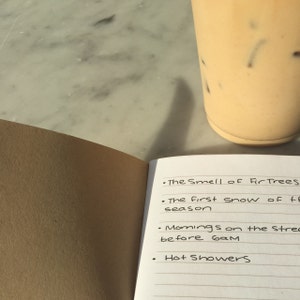 • The Smell of Fir Trees
• The First Snow of
season
• Mornings on the
before 6am
• Hot Showers